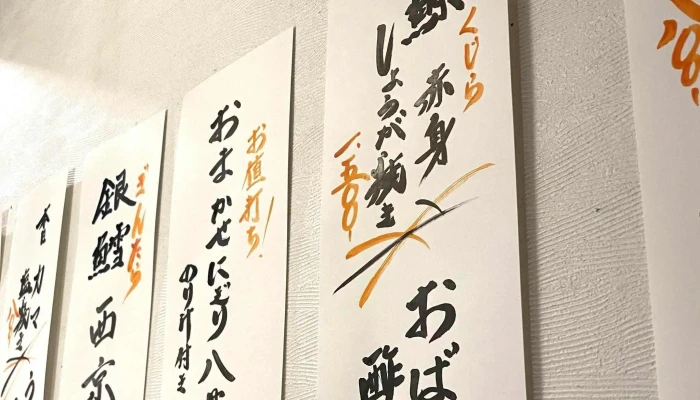 くじら
赤身
しょうが焼き
おば
酢
お値打ち!
おまかせにぎり 八
のり汁付き
ぎんだら
銀鱈 西京
カマ
塩焼き